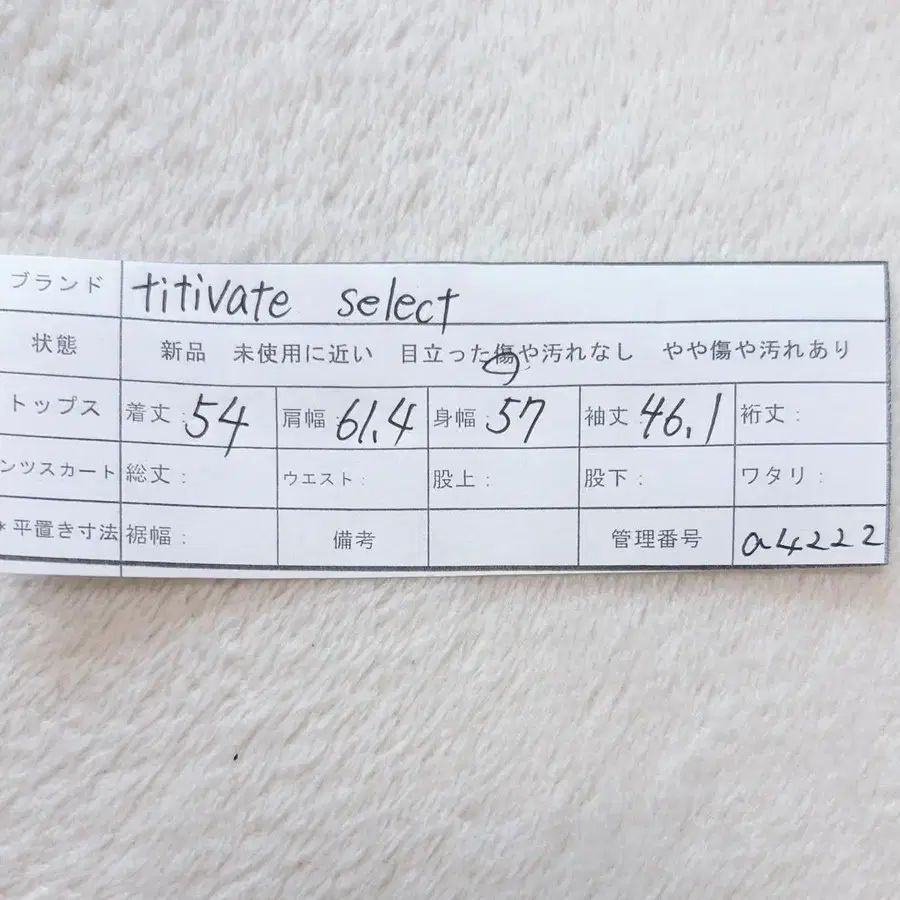 ブランド titivate select
状態 新品 未使用に近い 目立った傷や汚れなし やや傷や汚れあり
トップス 着丈:54 肩幅:61.4 身幅:57 袖丈:46.1 裄丈:
ンツスカート 総丈: ウエスト: 股上: 股下: ワタリ:
*平置き寸法 裾幅: 備考 管理番号 a4222